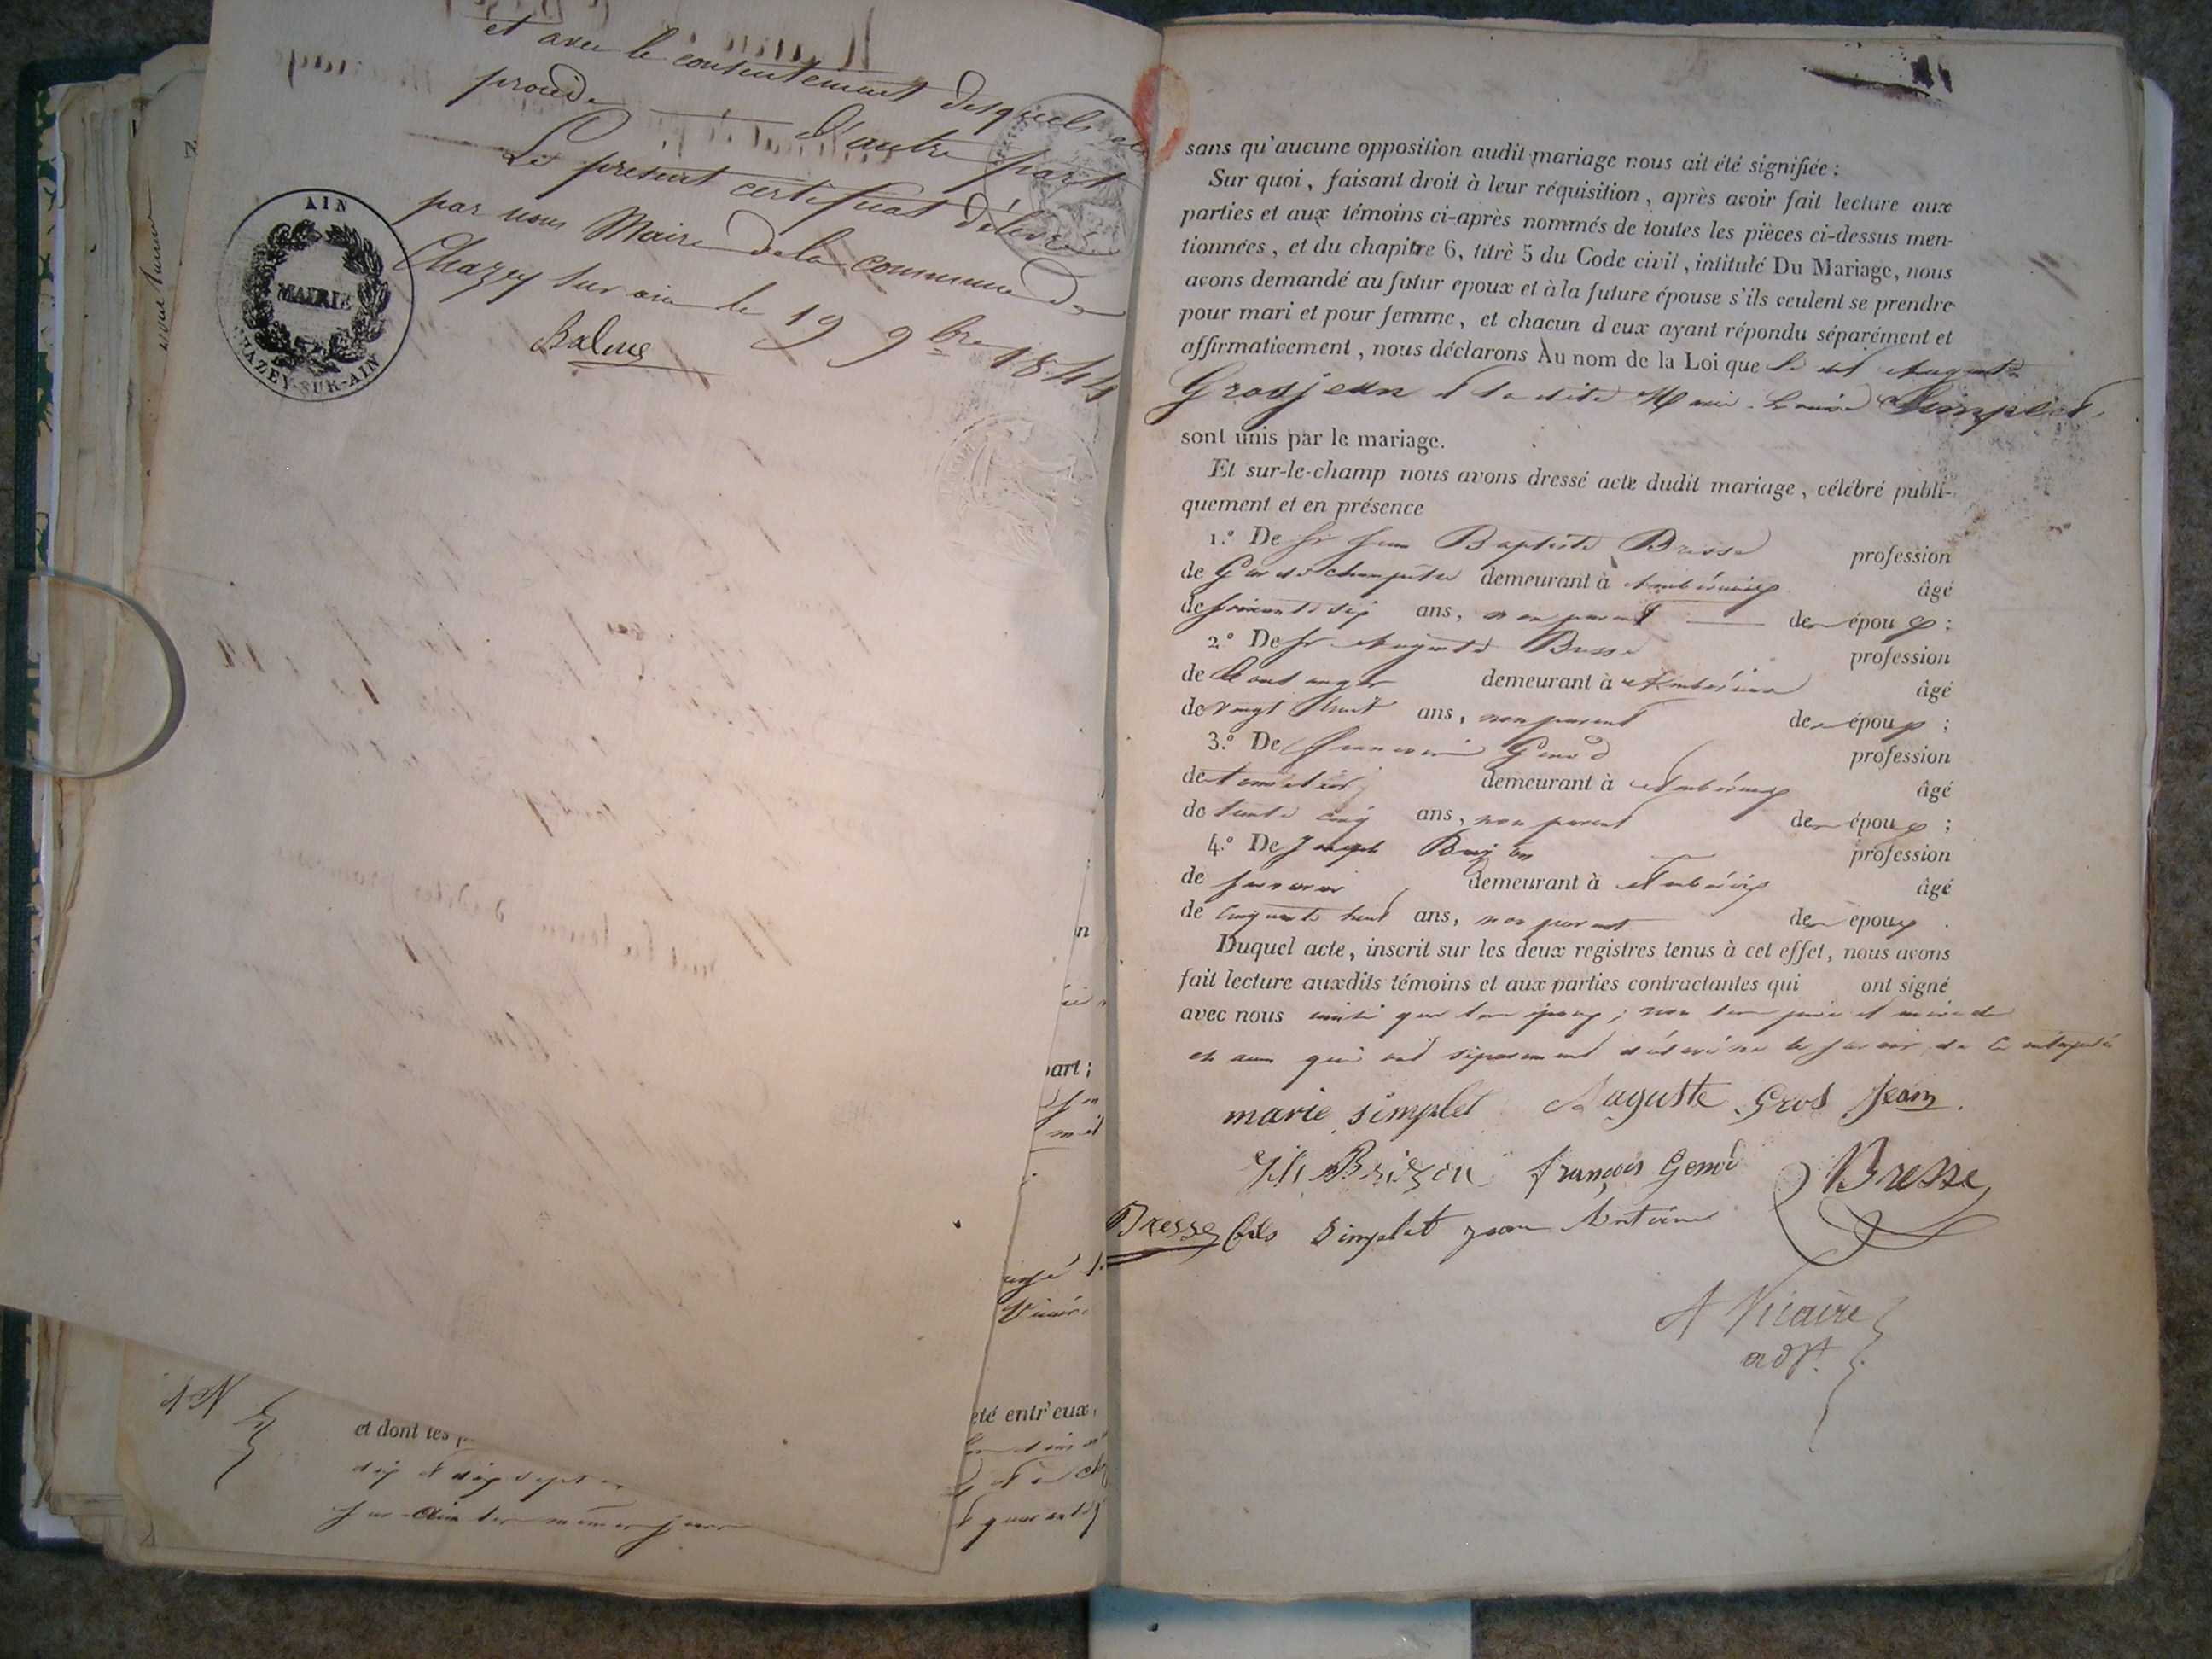 et avec le consentement desquels elle
procède d'autre part
Le present certificat délivré
par nous Maire de la commune de
Chazey sur ain le 19 9bre 1844
AIN
MAIRIE
CHAZEY-SUR-AIN
AN
et dont les p
dix et dix sept
sur Ain les mêmes jours
n
part;
été entr'eux,
sans qu'aucune opposition audit mariage nous ait été signifiée:
Sur quoi, faisant droit à leur réquisition, après avoir fait lecture aux
parties et aux témoins ci-après nommés de toutes les pièces ci-dessus men-
tionnées, et du chapitre 6, titre 5 du Code civil, intitulé Du Mariage, nous
avons demandé au futur epoux et à la future épouse s'ils veulent se prendre
pour mari et pour femme, et chacun d'eux ayant répondu séparément et
affirmativement, nous déclarons Au nom de la Loi que le dit Auguste
Grosjean et la dite Marie-Louise Simplet
sont unis par le mariage.
Et sur-le-champ nous avons dressé acte dudit mariage, célébré publi-
quement et en présence
1.º De Sr Jean Baptiste Bresse profession
de Garde champêtre demeurant à Ambérieux âgé
de soixante six ans, non parent des époux;
2.º De Sr Auguste Bresse profession
de Boulanger demeurant à Ambérieux âgé
de vingt huit ans, non parent des époux;
3.º De François Genod profession
de demeurant à Ambérieux âgé
de trente cinq ans, non parent des époux;
4.º De Joseph Brizon profession
de demeurant à Ambérieux âgé
de cinquante huit ans, non parent des epoux.
Duquel acte, inscrit sur les deux registres tenus à cet effet, nous avons
fait lecture auxdits témoins et aux parties contractantes qui ont signé
avec nous ainsi que les époux; non les père et mère de
qui ont séparément déclaré ne le savoir de ce
marie simplet Auguste Gros Jean.
Jh Brizon françois Genod Bresse
Bresse fils Simplet jean Antoine
A Vicaire
adjt.